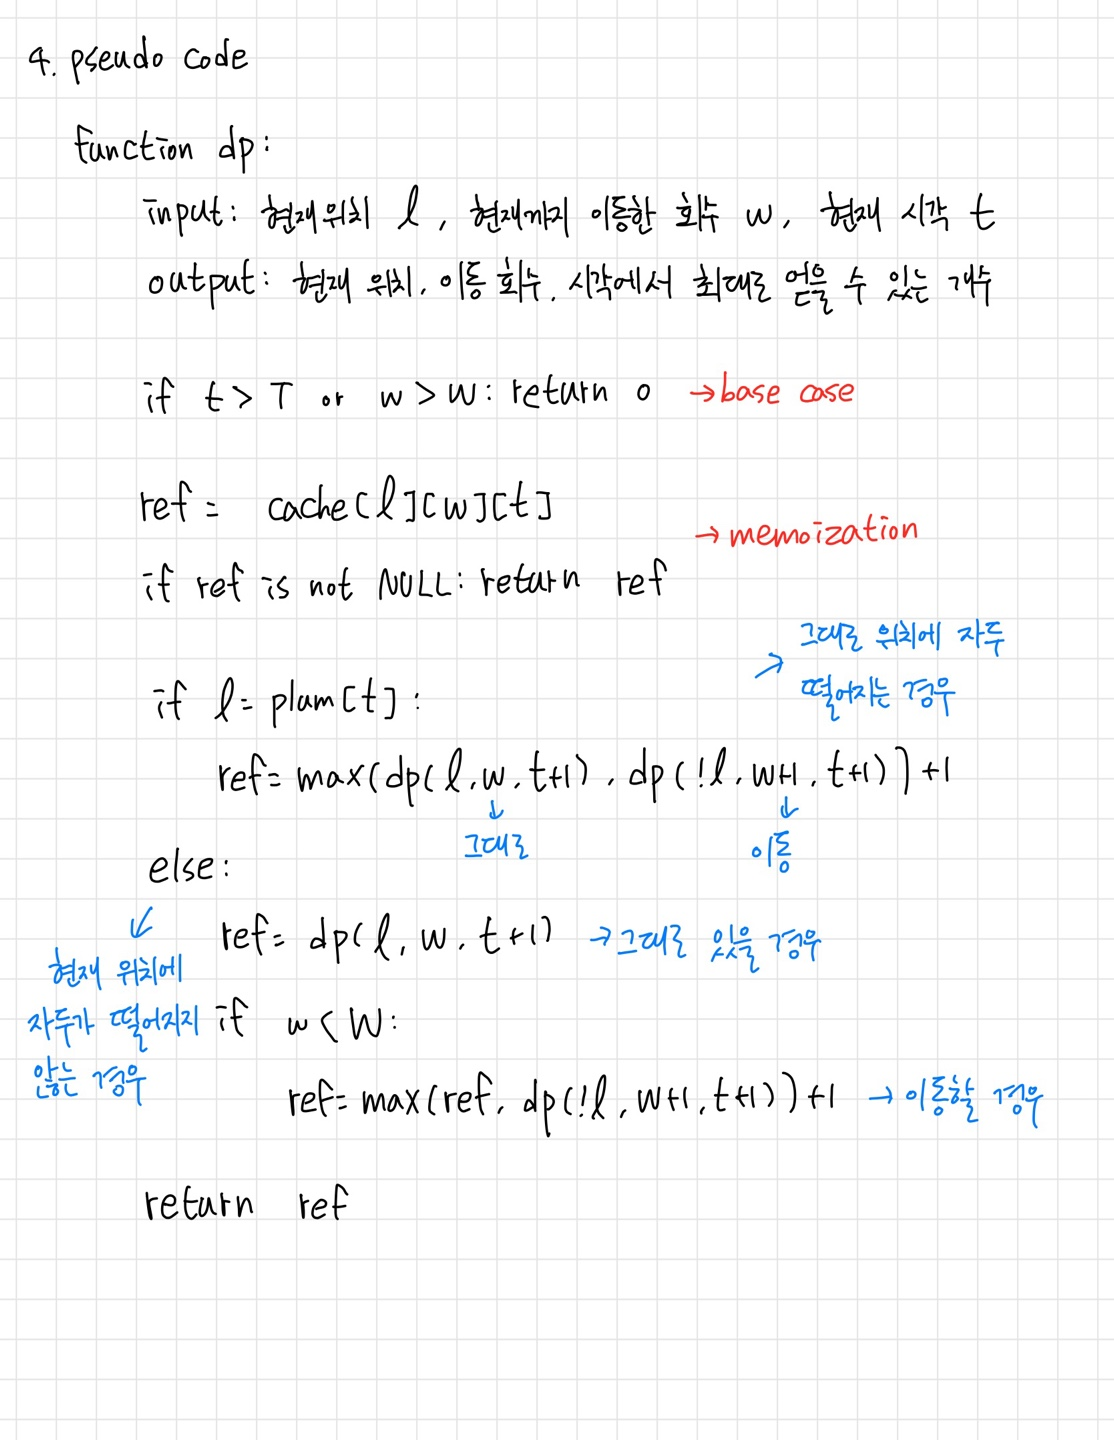 4. pseudo code
function dp:
input: 현재위치 l, 현재까지 이동한 회수 w, 현재 시각 t
output: 현재 위치, 이동 회수, 시각에서 최대로 얻을 수 있는 개수
if t > T or w > W: return 0 → base case
ref = cache[l][w][t]
→ memoization
if ref is not NULL: return ref
→ 그대로 위치에 자두
떨어지는 경우
if l = plam[t]:
ref = max(dp(l, w, t+1), dp(!l, w+1, t+1)) + 1
↓ 그대로
↓ 이동
else:
ref = dp(l, w, t+1) → 그대로 있을 경우
↙
현재 위치에
자두가 떨어지지
않는 경우
if w < W:
ref = max(ref, dp(!l, w+1, t+1)) + 1 → 이동할 경우
return ref